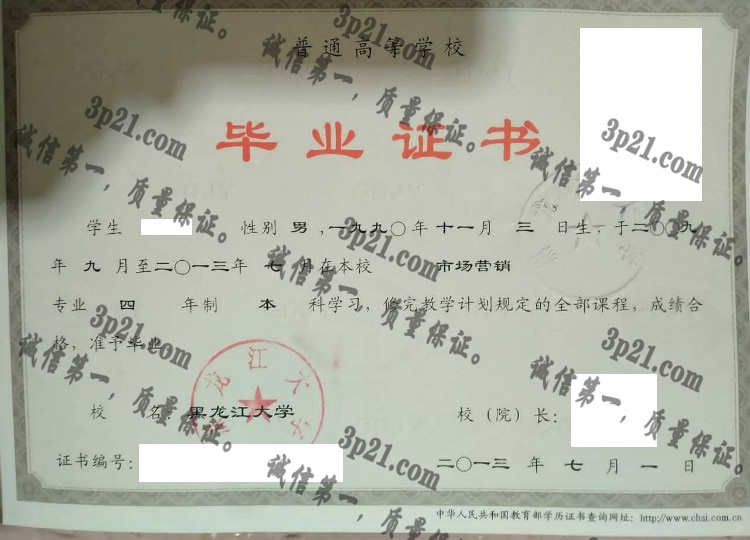 普通高等学校
毕业证书
学生 性别 男,一九九〇年 十一月 三 日生,于二〇〇九
年 九 月至二〇一三年 七 月在本校 市场营销
专业 四 年制 本 科学习,修完教学计划规定的全部课程,成绩合
格,准予毕业。
校 名:黑龙江大学
校(院)长:
证书编号:
二〇一三 年 七 月 一 日
中华人民共和国教育部学历证书查询网址:http://www.chsi.com.cn
3p21.com
诚信第一,质量保证。
3p21.com
诚信第一,质量保证。
3p21.com
诚信第一,质量保证。
3p21.com
诚信第一,质量保证。
3p21.com
诚信第一,质量保证。
3p21.com
诚信第一,质量保证。
3p21.com
诚信第一,质量保证。
3p21.com
诚信第一,质量保证。
龙江大